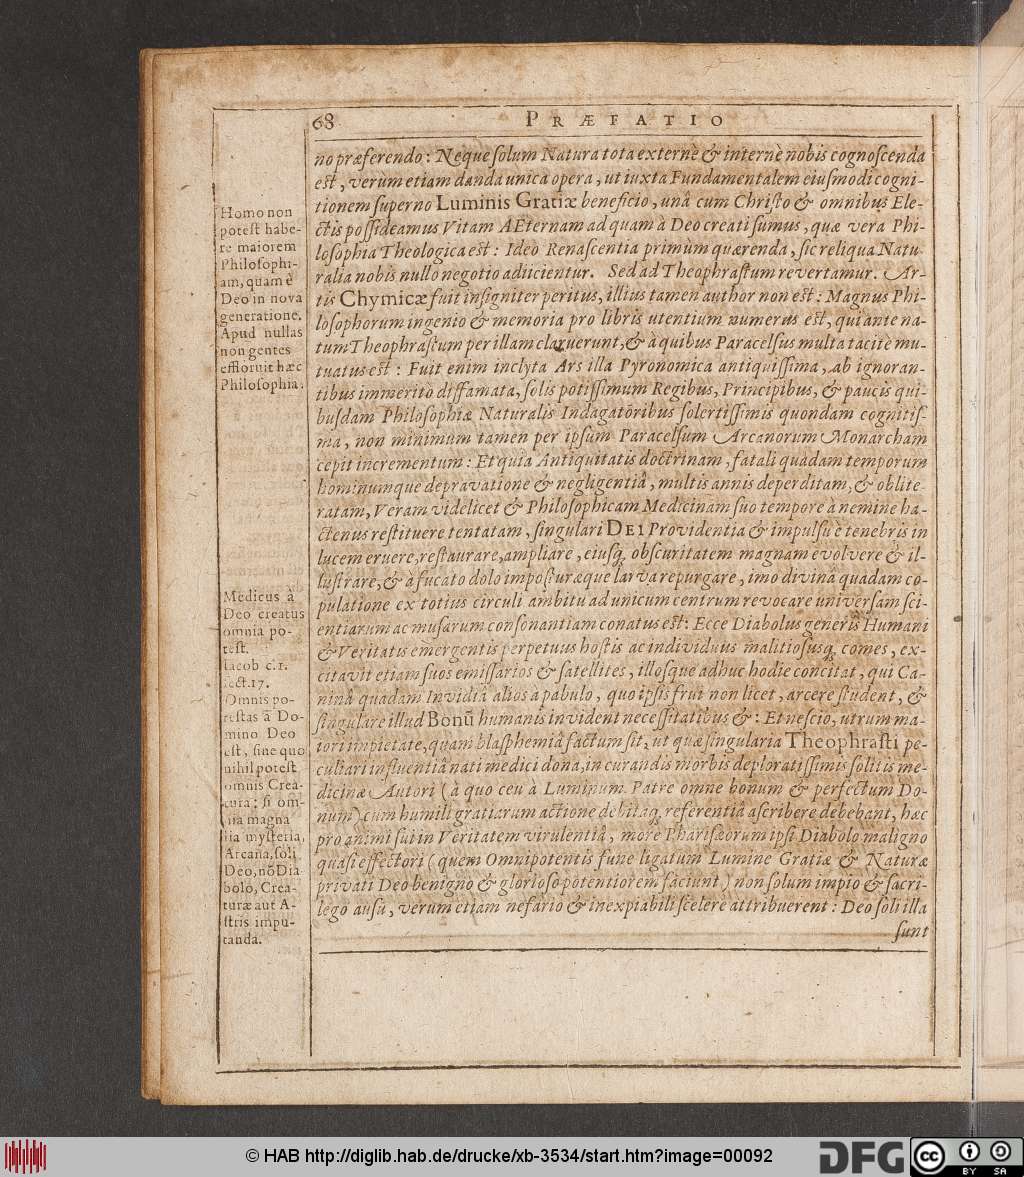 68
PRÆFATIO
no præferendo: Neque solum Natura tota externè & internè nobis cognoscenda
est, verum etiam danda unica opera, ut iuxta Fundamentalem eiusmodi cogni-
tionem superno Luminis Gratiæ beneficio, unâ cum Christo & omnibus Ele-
ctis possideamus Vitam AEternam ad quam à Deo creati sumus, quæ vera Phi-
losophia Theologica est: Ideo Renascentia primùm quærenda, sic reliqua Natu-
ralia nobis nullo negotio adiicientur. Sed ad Theophrastum revertamur. Ar-
tis Chymicæ fuit insigniter peritus, illius tamen author non est: Magnus Phi-
losophorum ingenio & memoria pro libris utentium numerus est, qui ante na-
tum Theophrastum per illam claruerunt, & à quibus Paracelsus multa tacitè mu-
tuatus est: Fuit enim inclyta Ars illa Pyronomica antiquissima, ab ignoran-
tibus immeritò diffamata, solis potissimum Regibus, Principibus, & paucis qui-
busdam Philosophiæ Naturalis Indagatoribus solertissimis quondam cognitis-
ma, non minimum tamen per ipsum Paracelsum Arcanorum Monarcham
cepit incrementum: Et quia Antiquitatis doctrinam, fatali quâdam temporum
hominumque depravatione & negligentiâ, multis annis deperditam, & oblite-
ratam, Veram videlicet & Philosophicam Medicinam suo tempore à nemine ha-
ctenus restituere tentatam, singulari DEI Providentia & impulsu è tenebris in
lucem eruere, restaurare, ampliare, eiusq́; obscuritatem magnam evolvere & il-
lustrare, & à fucato dolo imposturæque larva repurgare, imo divinâ quâdam co-
pulatione ex totius circuli ambitu ad unicum centrum revocare universam sci-
entiarum ac musarum consonantiam conatus est: Ecce Diabolus generis Humani
& Veritatis emergentis perpetuus hostis ac individuus malitiosusq́; comes, ex-
citavit etiam suos emissarios & satellites, illosque adhuc hodie concitat, qui Ca-
ninâ quadam Invidiâ alios à pabulo, quo ipsis frui non licet, arcere student, &
singulare illud Bonũ humanis invident necessitatibus &: Et nescio, utrum ma-
iori impietate, quam blasphemiâ factum sit, ut quæ singularia Theophrasti pe-
culiari influentiâ nati medici dona, in curandis morbis deploratissimis solitis me-
dicinæ Autori (à quo ceu à Luminum Patre omne bonum & perfectum Do-
num) cum humili gratiarum actione debitaq́; referentiâ ascribere debebant, hæc
pro animi sui in Veritatem virulentiâ, more Pharisæorum ipsi Diabolo maligno
quasi effectori (quem Omnipotentis fune ligatum Lumine Gratiæ & Naturæ
privati Deo benigno & glorioso potentiorem faciunt) non solum impio & sacri-
lego ausu, verum etiam nefario & inexpiabili scelere attribuerent: Deo soli illa
sunt
Homo non
potest habe-
re maiorem
Philosophi-
am, quam è
Deo in nova
generatione.
Apud nullas
non gentes
effloruit hæc
Philosophia.
Medicus à
Deo creatus
omnia po-
test.
Iacob c.1.
sect.17.
Omnis po-
testas à Do-
mino Deo
est, sine quo
nihil potest
omnis Crea-
tura; si om-
nia magna
nia mysteria,
Arcana, soli
Deo, nõ Dia
bolo, Crea-
turæ aut A-
stris impu-
tanda.
© HAB http://diglib.hab.de/drucke/xb-3534/start.htm?image=00092
DFG
cc
BY SA